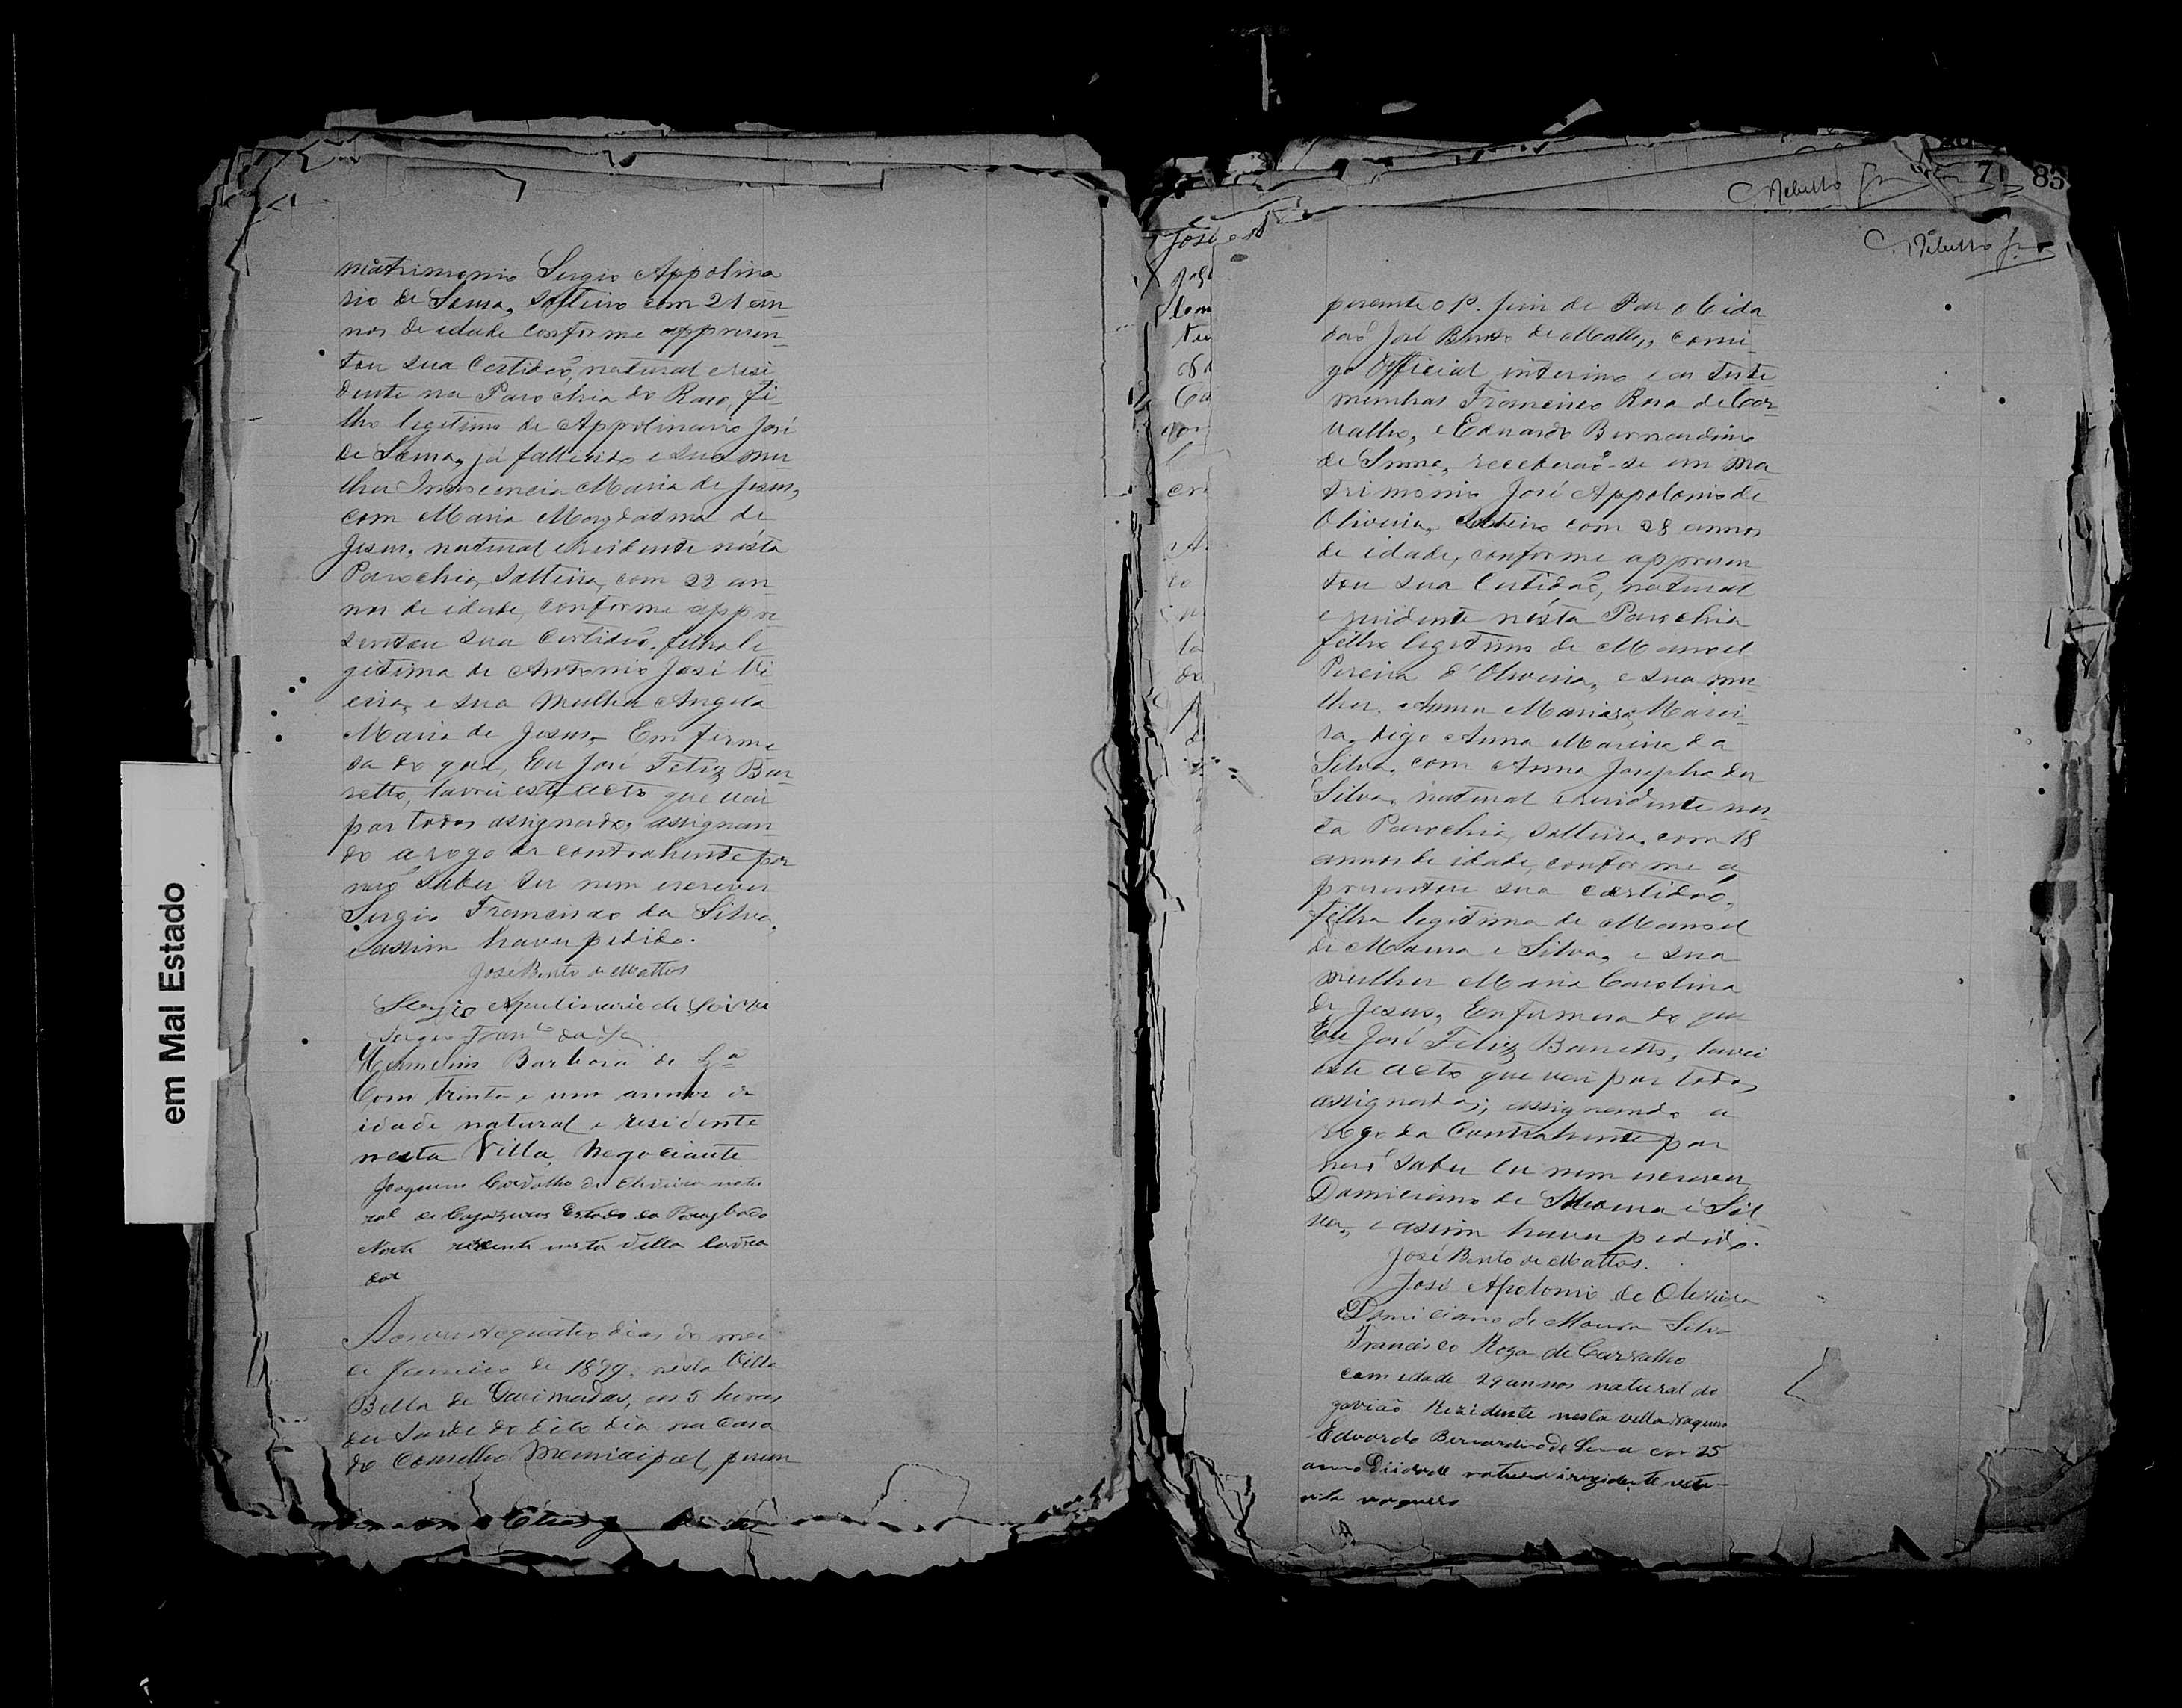 em Mal Estado
matrimonio Sergio Appolina
rio de Sousa, solteiro com 21 an-
nos de idade conforme appresen-
tou sua Certidaõ, natural e resi
dente na Parochia do Raso, fi-
lho legitimo de Appolinario José
de Sousa, já fallecido e sua mu-
lher Innocencia Maria de Jesus,
com Maria Magdadma de
Jesus, natural e residente nésta
Parochia, solteira, com 22 an-
nos de idade, conforme appre
sentou sua Certidaõ, filha le
gitima de Antonio José Vi-
eira, e sua mulher Angela
Maria de Jesus, Em firme
sa do que, Eu José Feliz Bar
retto, lavrei este acto que vai
por todos assignado, assignan-
do a rogo da contrahente por
naõ saber ler nem escrever
Sergio Francisco da Silva,
e assim haver pedido.
José Bento de Mattos
Sergio Apulinario de Souza
Sergio Fran.co da S.a
Barbosa de S.a
Com trinta e um annos de
idade natural e residente
nesta Villa, Negociante
Joaquim Carvalho de Oliveira natu
ral de Cajazeiras Estado da Parahyba do
Norte rezidente nesta villa
dor
Aos vinte e quatro dias do mez
de Janeiro de 1899, nesta Villa
Bella de Queimadas, as 5 horas
da tarde do dito dia na Casa
do Conselho Municipal, peran-
71 85
C. Rebello Jr.
C. Rebello Jr.
José
perante o 1º. Juiz de Paz o Cida
daõ José Bento de Mattos, comi-
go Official interino e as teste-
munhas Francisco Rosa de Car-
valho, e Eduardo Bernardino
de Senna, receberaõ-se em ma
trimonio José Appolonio de
Oliveira, solteiro com 28 annos
de idade, conforme appresen
tou sua Certidaõ, natural
e residente nésta Parochia
filho legitimo de Manoel
Pereira d'Oliveira, e sua mu-
lher, Anna Mariasa, Marei-
ra, digo Anna Maria da
Silva, com Anna Josepha da
Silva, natural e residente nes-
ta Parochia, solteira, com 18
annos de idade, conforme a
presentou sua certidaõ,
filha legitima de Manoel
de Moura e Silva, e sua
mulher Maria Carolina
de Jesus, Em firmesa do que
Eu José Feliz Barretto, lavrei
este acto que vai por todos
assignados; assignando a
rogo da Contrahente por
naõ saber ler nem escrever,
Damiciano de Moura e Sil-
va, e assim haver pedido.
José Bento de Mattos.
José Apolonio de Oliveira
Damiciano de Moura Silva
Francisco Roza de Carvalho
com idade 29 annos natural do
gavião Rezidente nesta villa vaqueiro
Eduardo Bernardino de Sena con 25
anno Diidade natural irezidente nesta
vila vaqueiro